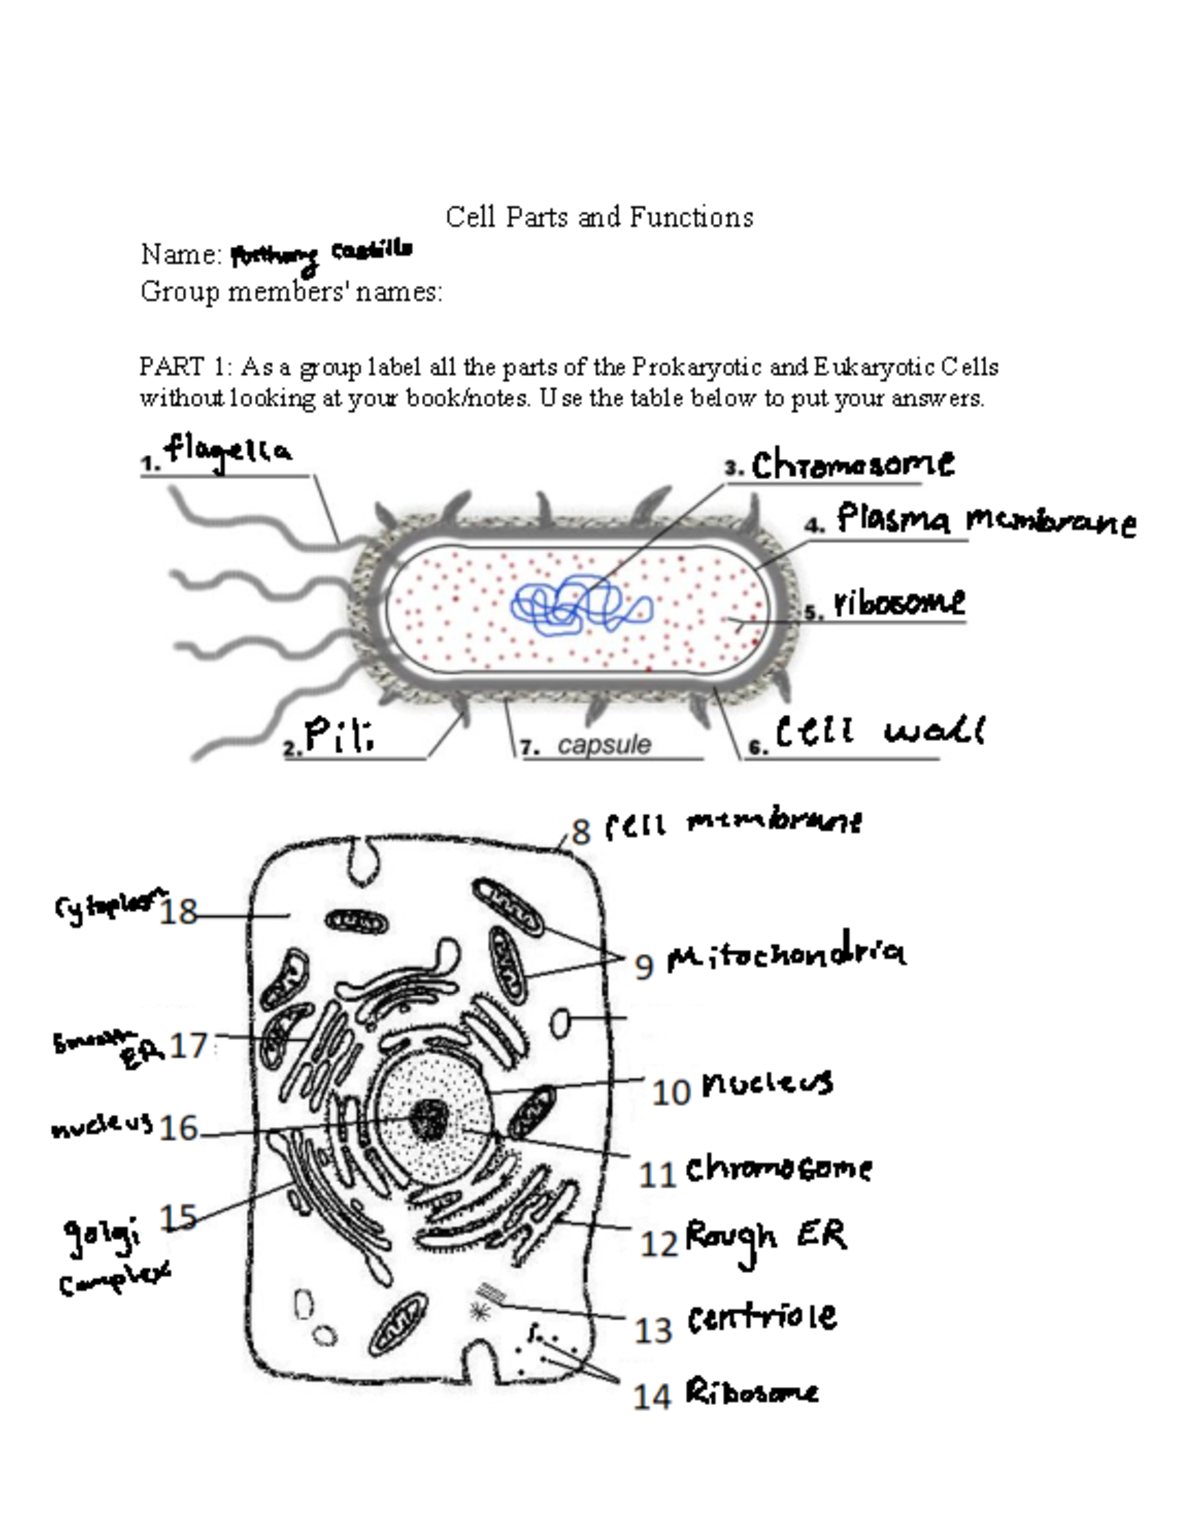 Cell Parts and Functions
Name: Castillo
Group members' names:
PART 1: As a group label all the parts of the Prokaryotic and Eukaryotic Cells
without looking at your book/notes. Use the table below to put your answers.
1. flagella
3. Chromosome
4. Plasma membrane
5. ribosome
2. Pili
7. capsule
6. Cell wall
8 cell membrane
Cytoplasm 18
9 Mitochondria
Smooth
ER 17
10 nucleus
nucleus 16
11 chromosome
golgi 15
complex
12 Rough ER
13 centriole
14 Ribosome